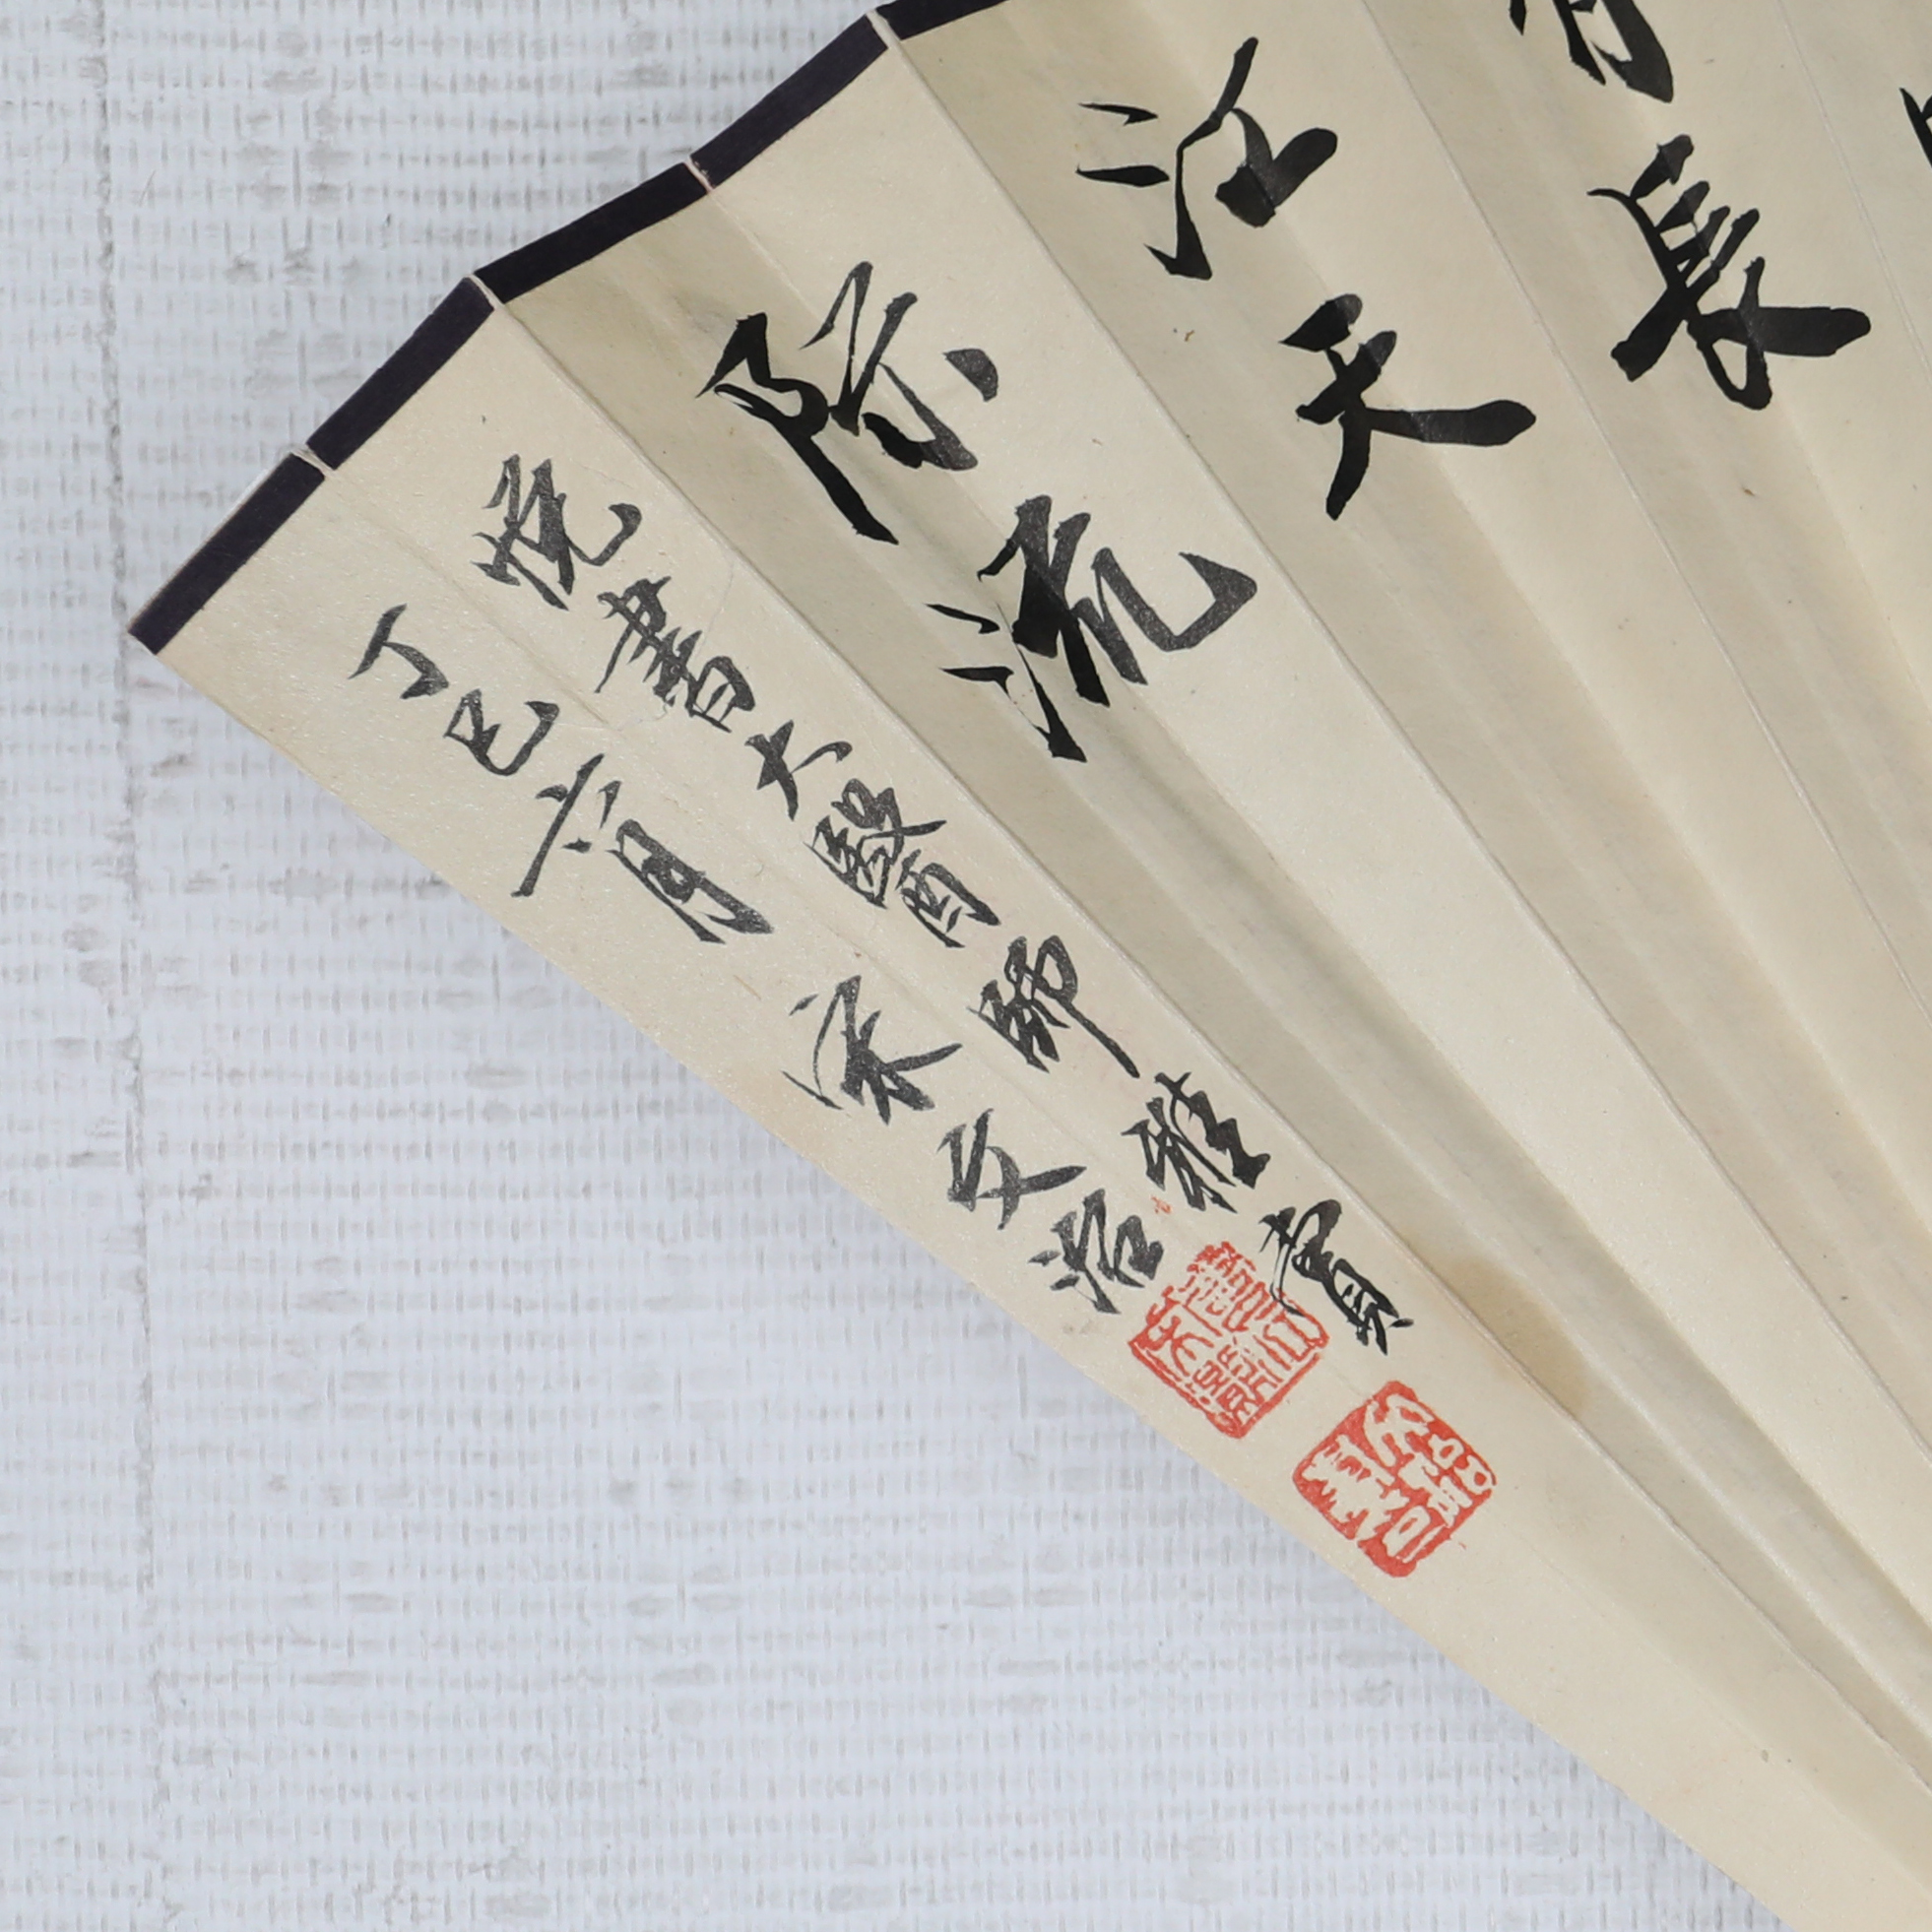 長
江天
際流
悦書大醫師雅賞
丁巳六月 宋文治